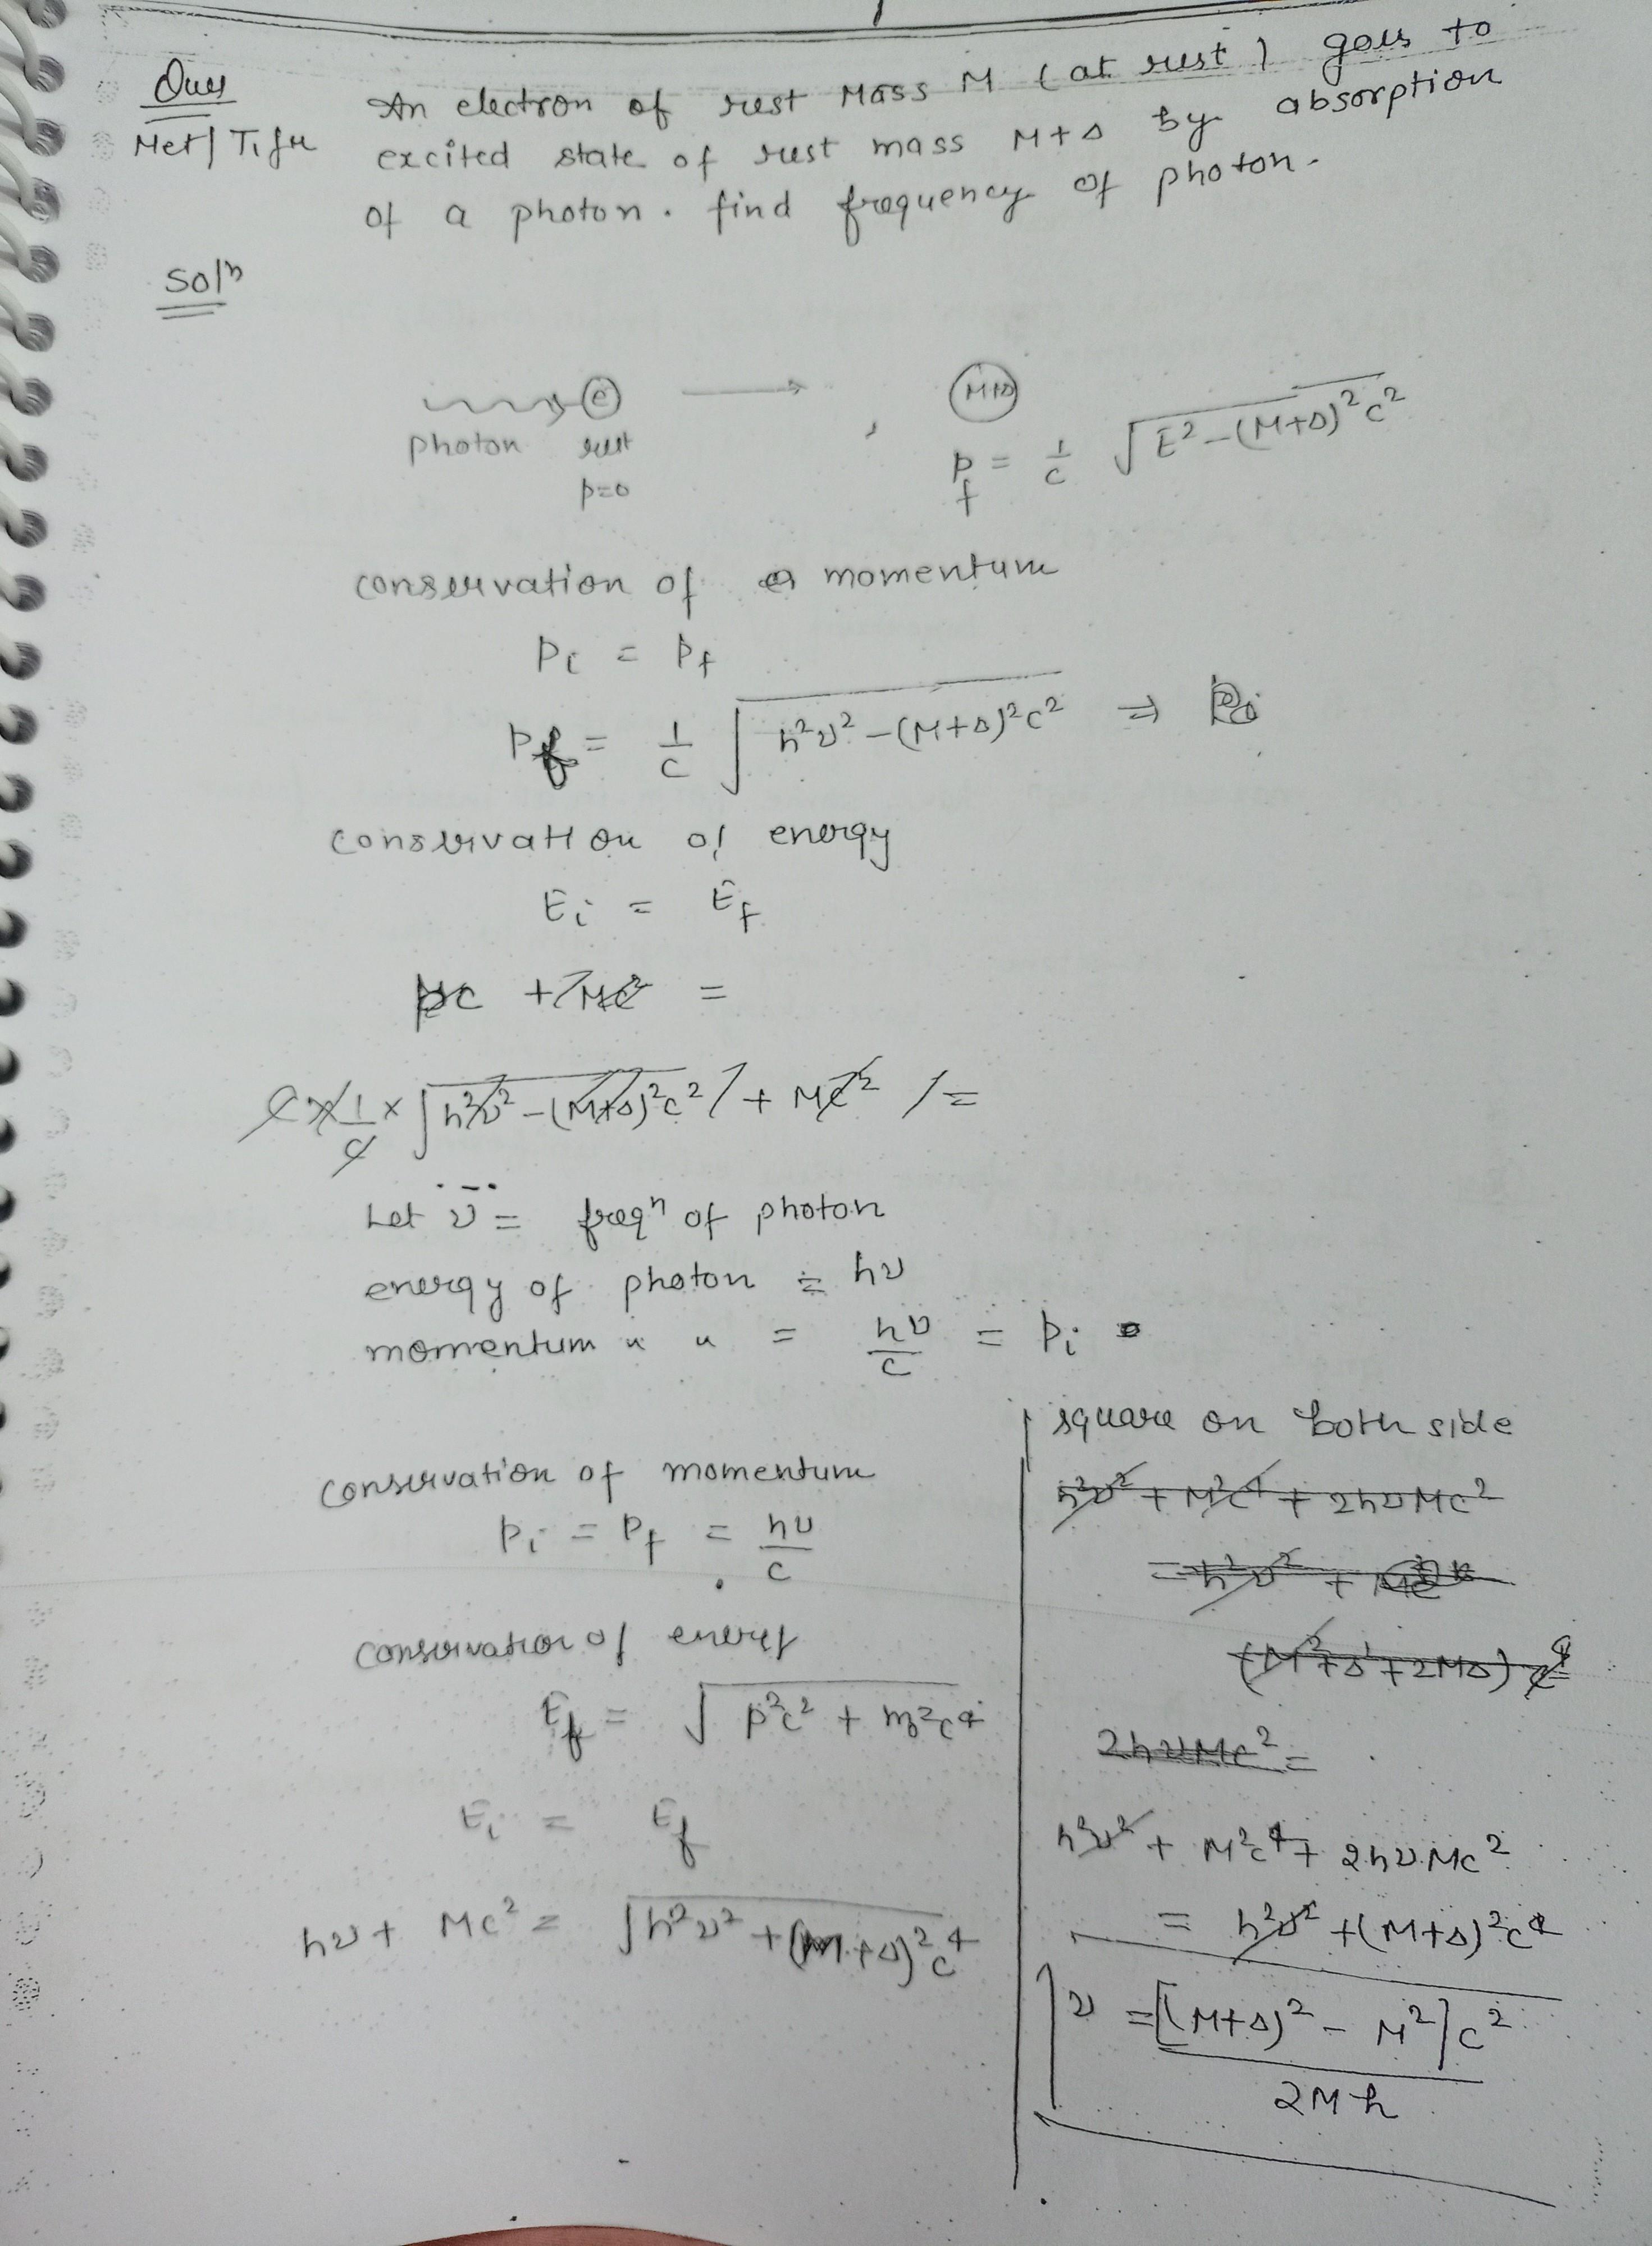 Ques An electron of rest Mass M (at rest) goes to
Met/Tifr excited state of rest mass M+Δ by absorption
of a photon. find frequency of photon.
Solⁿ
photon
e⁻
rest
p=0
M+Δ
p_f = 1/c √(E² - (M+Δ)²c²)
conservation of momentum
p_i = p_f
p_f = 1/c √(h²ν² - (M+Δ)²c²) ⇒
conservation of energy
E_i = E_f
pc + Mc² =
c × 1/c × √(h²ν² - (M+Δ)²c²) + Mc² =
Let ν = freqⁿ of photon
energy of photon = hν
momentum " " = hν/c = p_i
conservation of momentum
p_i = p_f = hν/c
conservation of energy
E_f = √(p²c² + m₀²c⁴)
E_i = E_f
hν + Mc² = √(h²ν² + (M+Δ)²c⁴)
square on both side
h²ν² + M²c⁴ + 2hνMc²
= h²ν² +
(M²+Δ²+2MΔ)
2hνMc² =
h²ν² + M²c⁴ + 2hνMc²
= h²ν² + (M+Δ)²c⁴
ν = [(M+Δ)² - M²]c² / 2Mh